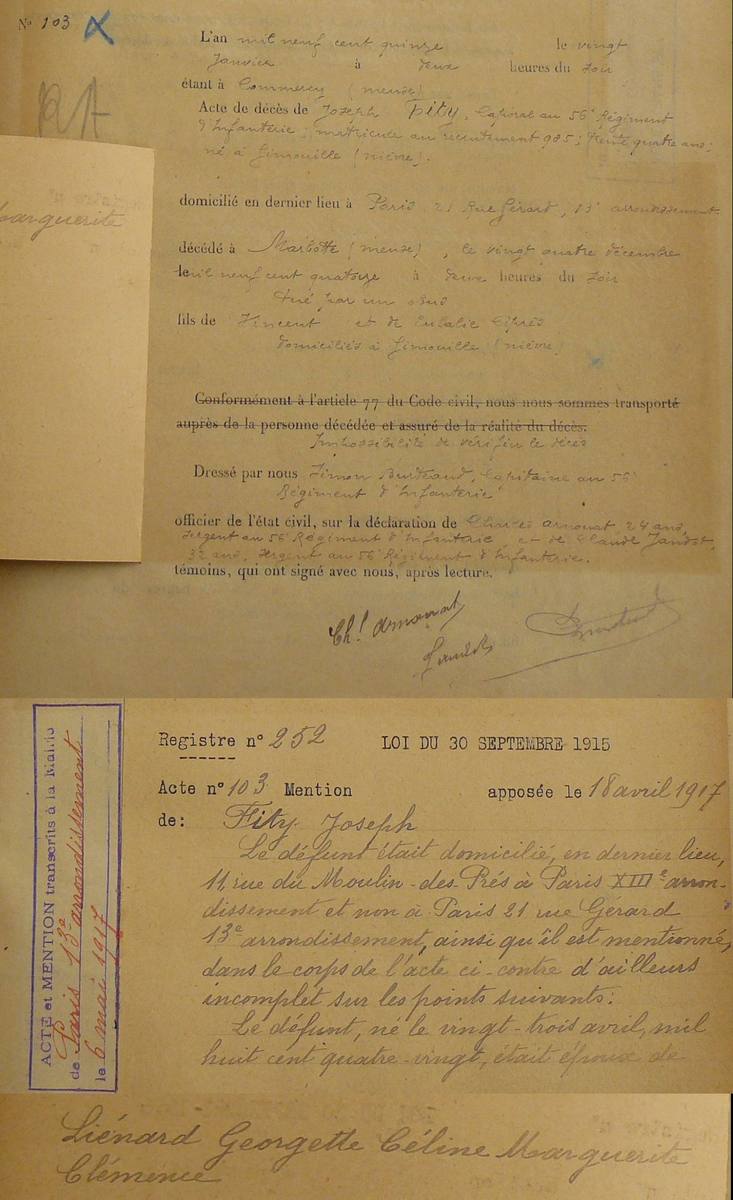 N° 103
L'an mil neuf cent quinze le vingt
Janvier à deux heures du soir
étant à Commercy (meuse)
Acte de décès de Joseph Fity, Caporal au 56e Régiment
d'Infanterie; matricule au recrutement 985; trente quatre ans;
né à Gimouille (nièvre).
Marguerite
domicilié en dernier lieu à Paris 21 Rue Gérard, 13e arrondissement.
décédé à Marbotte (meuse), le vingt quatre décembre
mil neuf cent quatorze à deux heures du soir
tué par un obus
fils de Vincent et de Eulalie Ciprès
domiciliés à Gimouille (nièvre)
Conformément à l'article 77 du Code civil, nous nous sommes transporté
auprès de la personne décédée et assuré de la réalité du décès.
Impossibilité de vérifier le décès
Dressé par nous Simon Burdeaud, Capitaine au 56e
Régiment d'Infanterie
officier de l'état civil, sur la déclaration de Charles Armonat 24 ans,
sergent au 56e Régiment d'Infanterie et de Claude Jandot,
32 ans, sergent au 56e Régiment d'Infanterie.
témoins, qui ont signé avec nous, après lecture.
Ch! Armonat
Jandot
ACTE et MENTION transcrits à la Mairie
de Paris 13e arrondissement
le 6 mai 1917
Registre n° 252 LOI DU 30 SEPTEMBRE 1915
Acte n° 103 Mention apposée le 18 avril 1917
de: Fity Joseph
Le défunt était domicilié, en dernier lieu,
11, rue du Moulin-des-Prés à Paris XIIIe arron-
dissement et non à Paris 21 rue Gérard
13e arrondissement, ainsi qu'il est mentionné,
dans le corps de l'acte ci-contre d'ailleurs
incomplet sur les points suivants:
Le défunt, né le vingt-trois avril, mil
huit cent quatre-vingt, était époux de
Liénard Georgette Céline Marguerite
Clémence